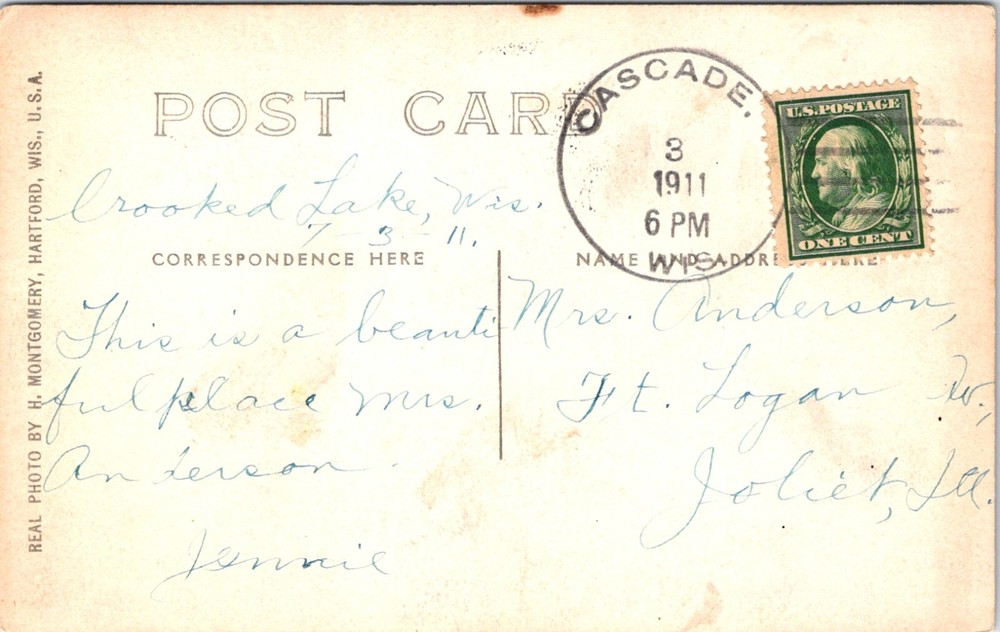 REAL PHOTO BY H. MONTGOMERY, HARTFORD, WIS., U.S.A.
POST CARD
CASCADE.
3
1911
6 PM
WIS
U.S. POSTAGE
ONE CENT
Crooked Lake, Wis.
7-3-11.
CORRESPONDENCE HERE
NAME AND ADDRESS HERE
This is a beauti
ful place Mrs.
Anderson.
Jennie
Mrs. Anderson,
Ft. Logan
Joliet, Ill.